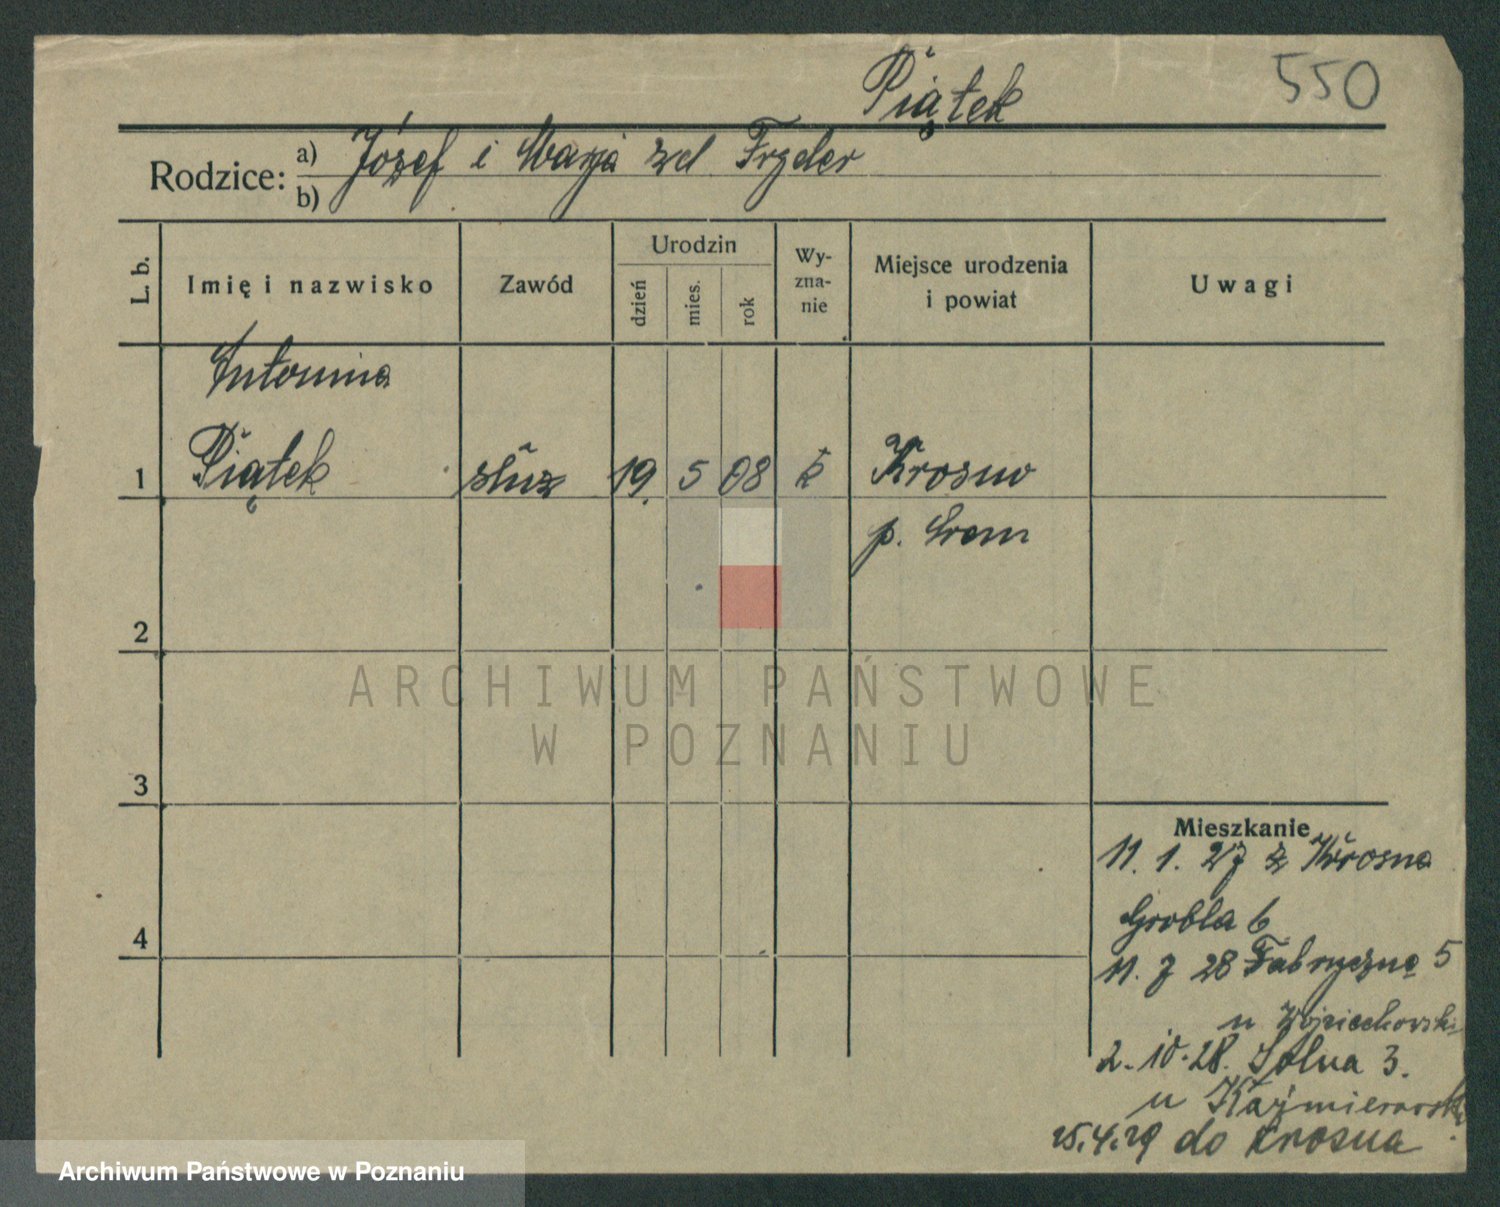 Piątek
550
Rodzice: a) Józef i Marja zd Fryder
b)
L. b. Imię i nazwisko Zawód Urodzin dzień mies. rok Wy-zna-nie Miejsce urodzenia i powiat Uwagi
Antonina
1 Piątek służ 19. 5 08 k Krosno
p. Śrem
2
3
4
Mieszkanie
11. 1. 27 z Krosna
Grobla 6
11. 7 28 Fabryczna 5
u Wojciechowski
2. 10. 28. Solna 3.
u Kaźmierowski
25. 4. 29 do Krosna
ARCHIWUM PAŃSTWOWE
W POZNANIU
Archiwum Państwowe w Poznaniu